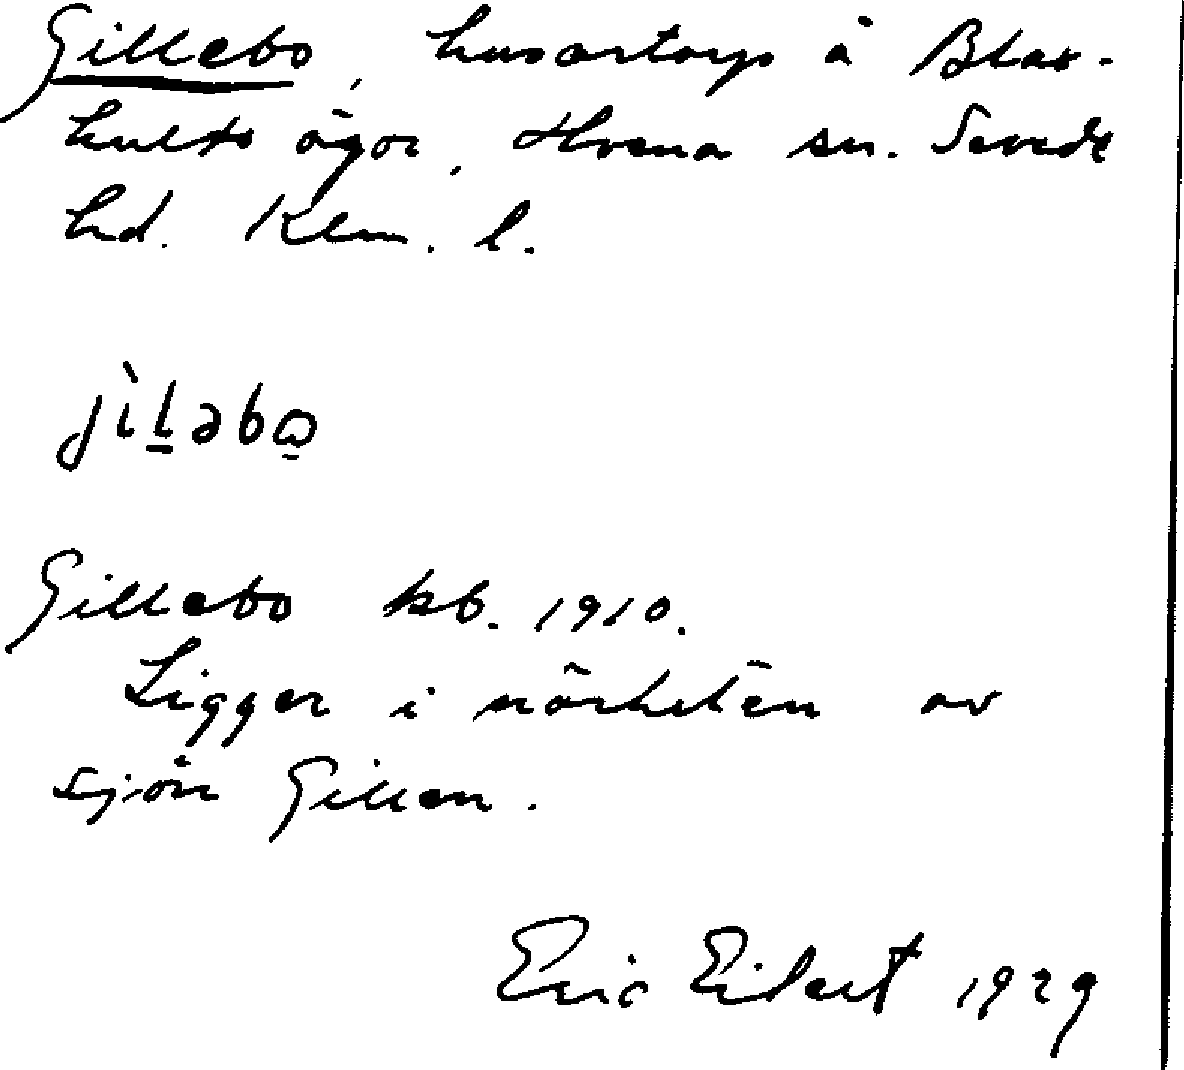 Gillebo, husartorp å Blax-
hults ägor, Hvena sn. Sevede
hd. Klm. l.
jìl̲əbω̱
Gillebo kb. 1910.
Ligger i närheten av
sjön Gillen.
Eric Eilert 1929